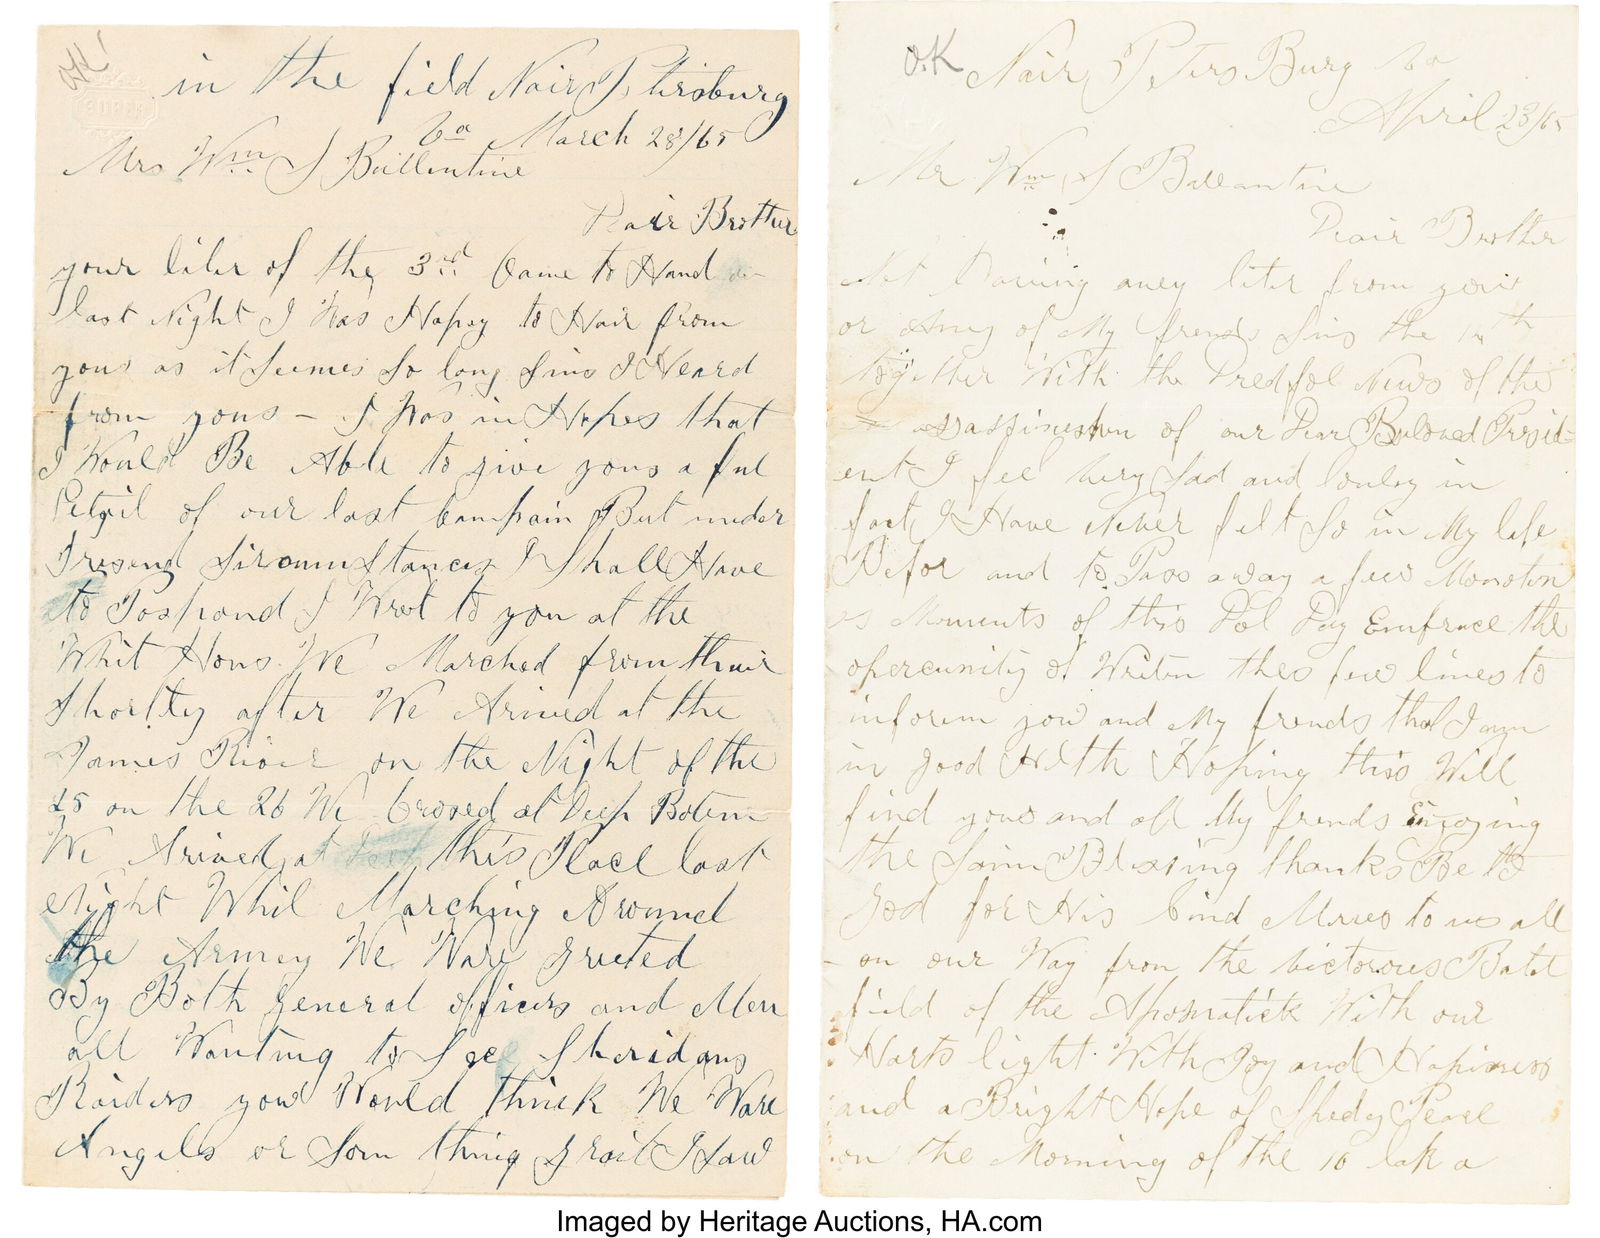 OK!
in the field Nair Petersburg
Va March 28/65
Mrs Wm S Ballentine
Dair Brother
your liter of the 3rd Came to Hand
last Night I Was Hapey to Hair from
yous as it Seemes So long Sins I Heard
from yous - I Was in Hopes that
I Would Be Able to give yous a ful
Detail of our last Campain But under
Presend Sircumstances I Shall Have
to Pospond I Wrot to you at the
Whit Hous. We Marched from thair
Shortley after We Arived at the
James River on the Night of the
25 on the 26 We Crosed at Deep Botem
We Arived at this Place last
Night Whil Marching Around
the Armey We Ware Greeted
By Both General officers and Men
all Wanting to See Sheridans
Raiders you Would think We Ware
Angels or Som thing Grait I Saw
O.K
Nair Peters Burg Va
April 23/65
Mr Wm S Ballantine
Dair Brother
Not Having aney liter from yous
or Aney of My frends Sins the
together With the Dredfol News of the
assasination of our Dear Beloved Presid-
ent I feel very Sad and lonley in
fact I Have Never felt So in My life
Befor and to Pass away a few Monoton
us Moments of this Dol Day Embrace the
opercunity of Writen thes few lines to
inform you and My frends that I am
in good Helth Hoping this Will
find yous and all My frends Enjoying
the Saim Blessing thanks Be to
God for His Cind Mercies to us all
- on our Way from the victorous Batel
field of the Apomatick With our
Harts light With Joy and Hapiness
and a Bright Hope of Spedey Peace
on the Morning of the 16 lak a
Imaged by Heritage Auctions, HA.com